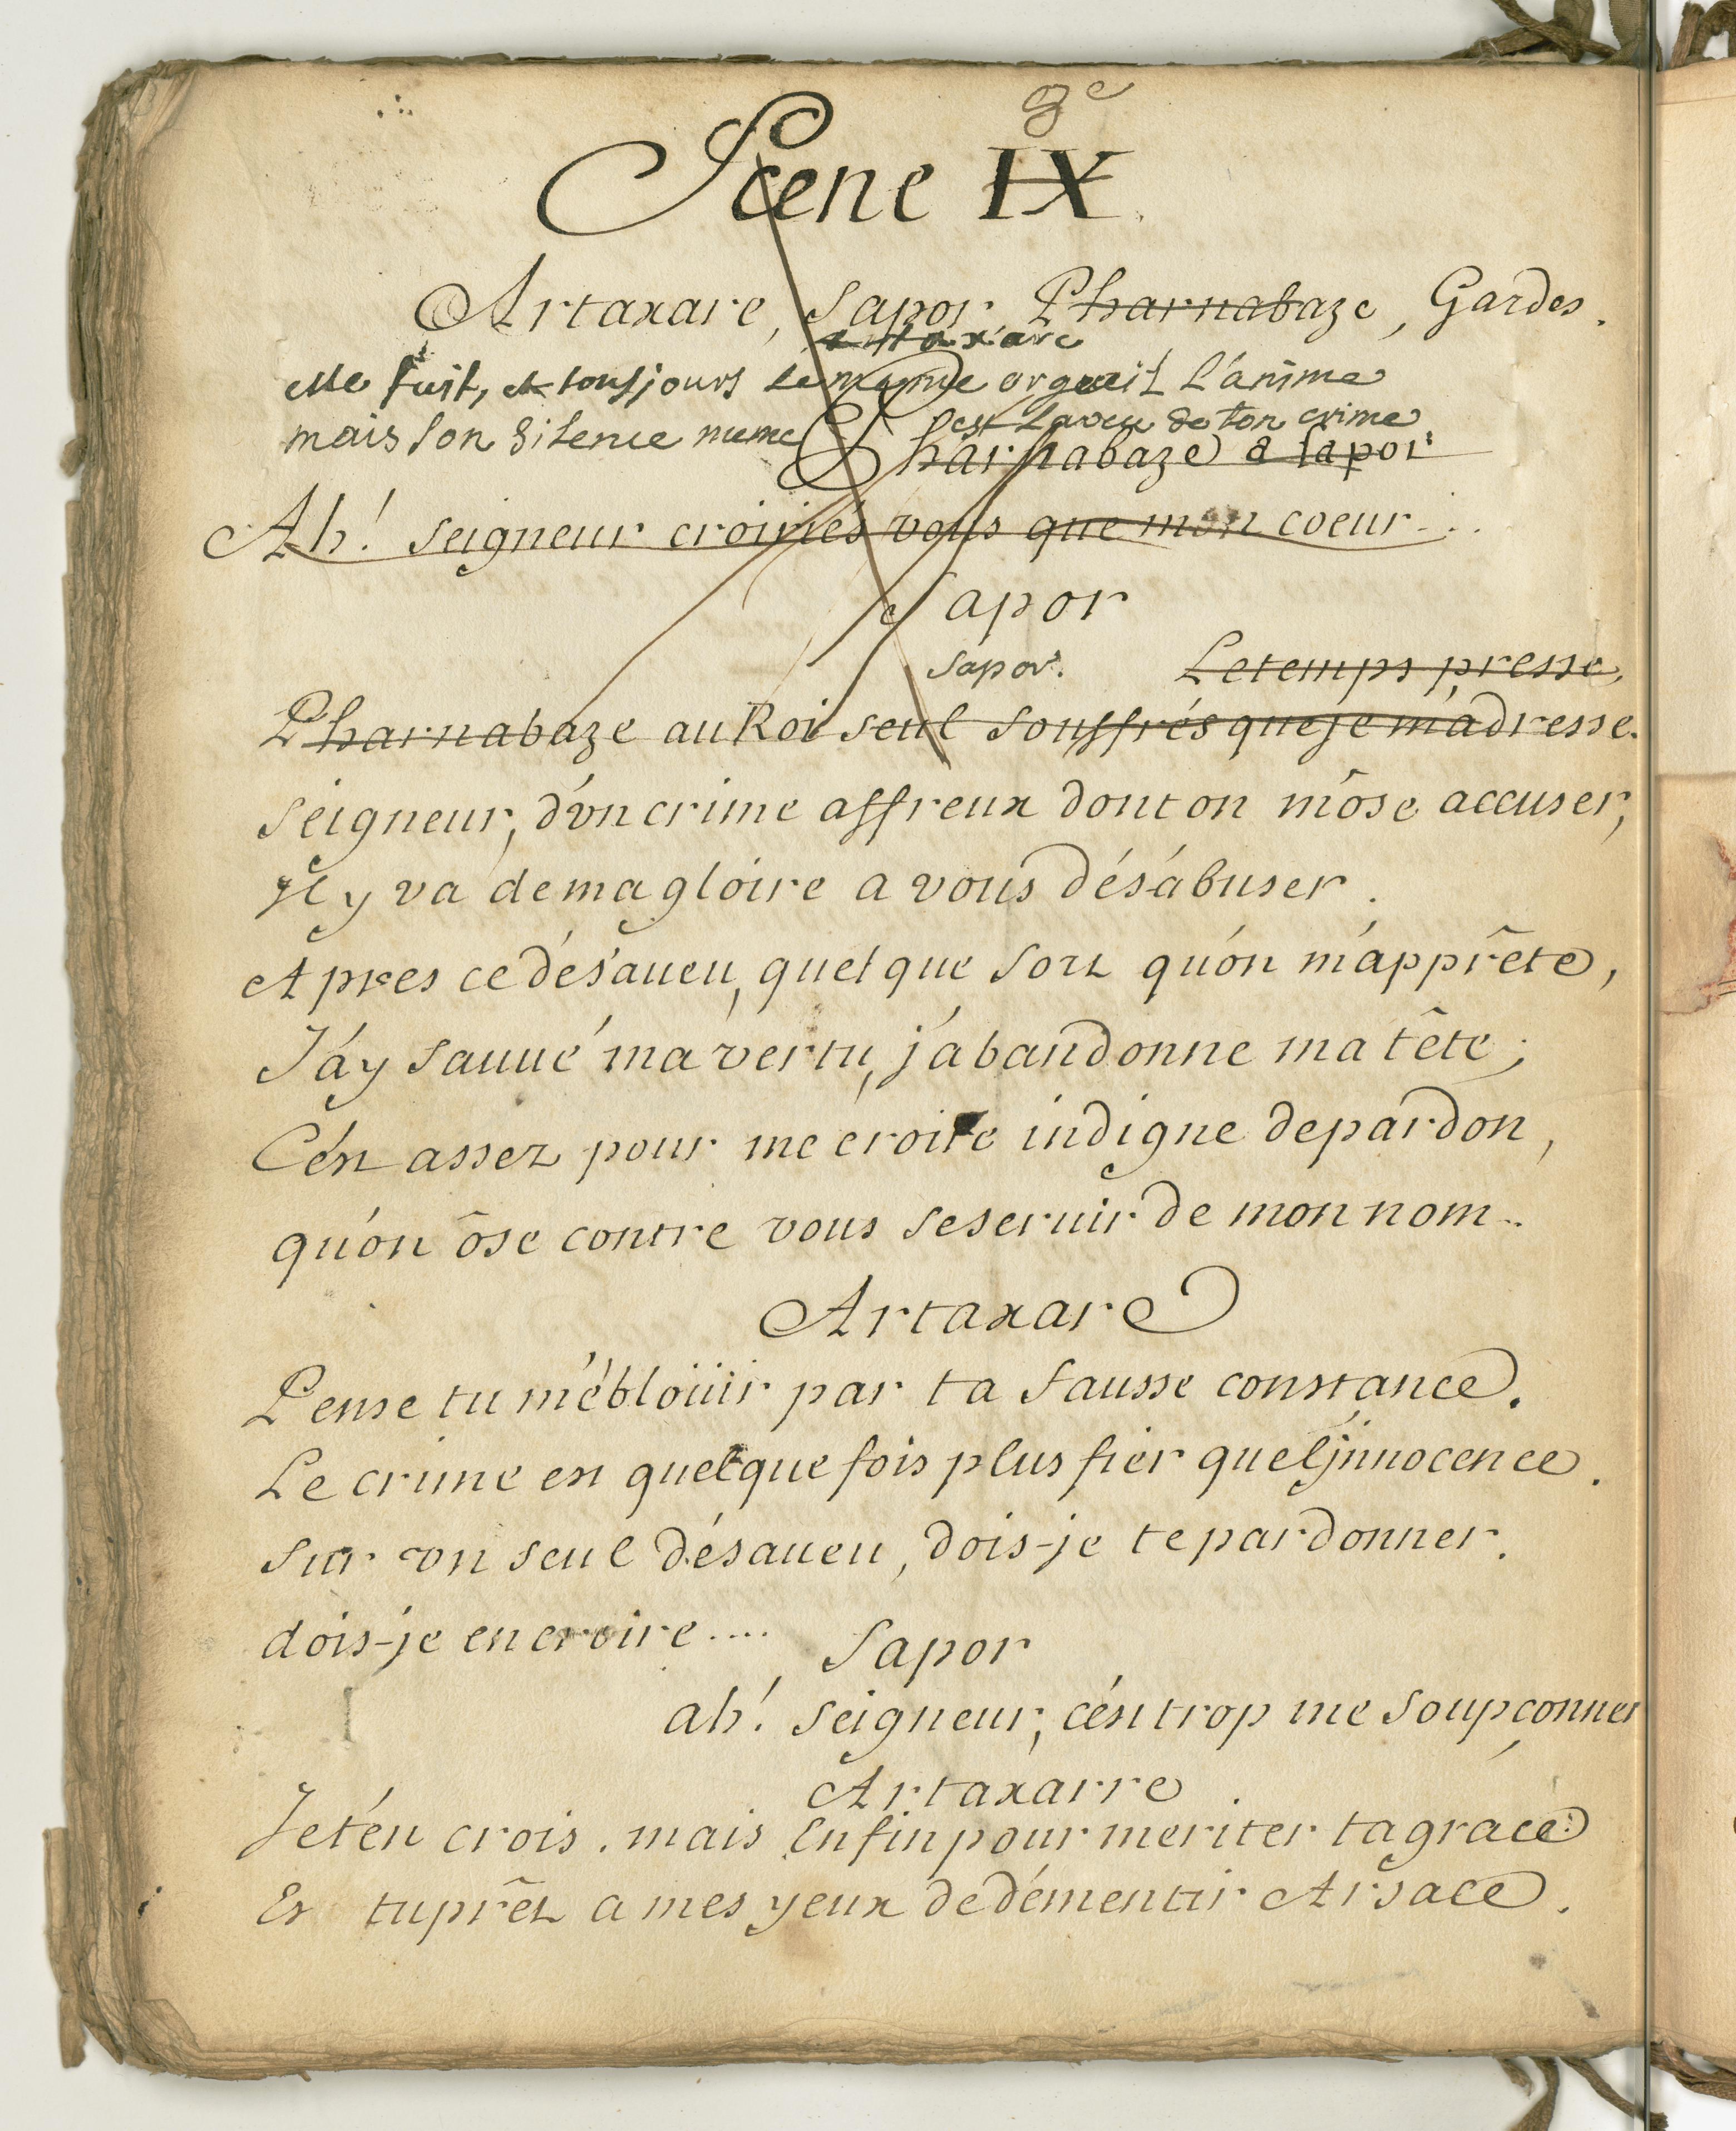 8e
Scene IX.
Artaxare, Sapor, Pharnabaze, Gardes.
artaxare
elle fuit, et tousjours le meme orgueil l'anime
mais son silence meme est l'aveu de ton crime
Pharnabaze a sapor
Ah! seigneur croiriés vous que mon coeur...
Sapor
sapor. Le temps presse,
Pharnabaze au Roi seul souffrés que je m'adresse.
Seigneur, d'vn crime affreux dont on m'ôse accuser,
Jl y va de ma gloire a vous désabuser.
Apres ce désaueu, quelque sort qu'on m'apprête,
J'ay sauué ma vertu, j'abandonne ma tête;
C'est assez pour me croire indigne de pardon,
qu'on ôse contre vous se seruir de mon nom..
Artaxare
Pense tu m'éblouiir par ta fausse constance.
Le crime est quelque fois plus fier que l'jnnocence.
Sur vn seul désaueu, dois-je te pardonner.
dois-je en croire.... Sapor
ah! Seigneur, c'est trop me soupçonner
Artaxarre
Je t'en crois. mais enfin pour meriter ta grace
Es tu prêt a mes yeux de démentir Arsace.